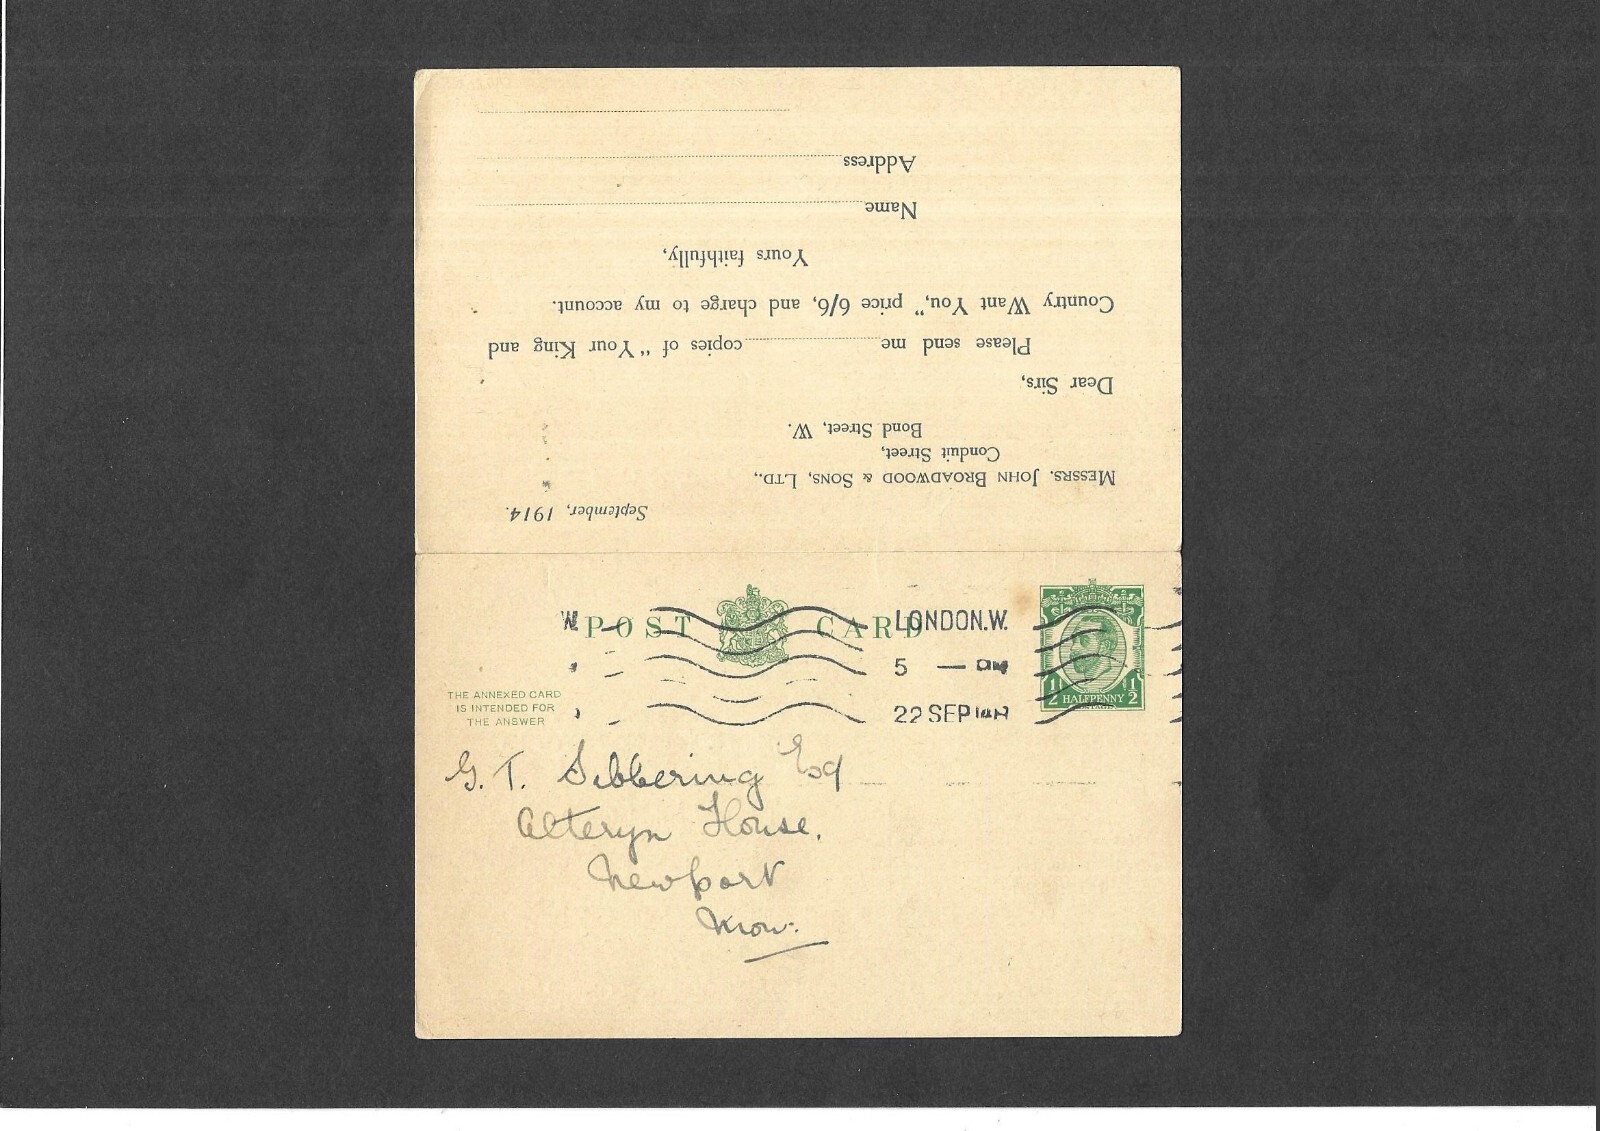 September, 1914.
MESSRS. JOHN BROADWOOD & SONS, LTD.,
Conduit Street,
Bond Street, W.
Dear Sirs,
Please send me copies of "Your King and
Country Want You," price 6/6, and charge to my account.
Yours faithfully,
Name
Address
W.
POST CARD
LONDON.W.
5 — PM
22 SEP
1/2 HALFPENNY 1/2
POSTAGE
THE ANNEXED CARD
IS INTENDED FOR
THE ANSWER
G. T. Sibbering Esq
Alteryn House.
Newport
Mon: